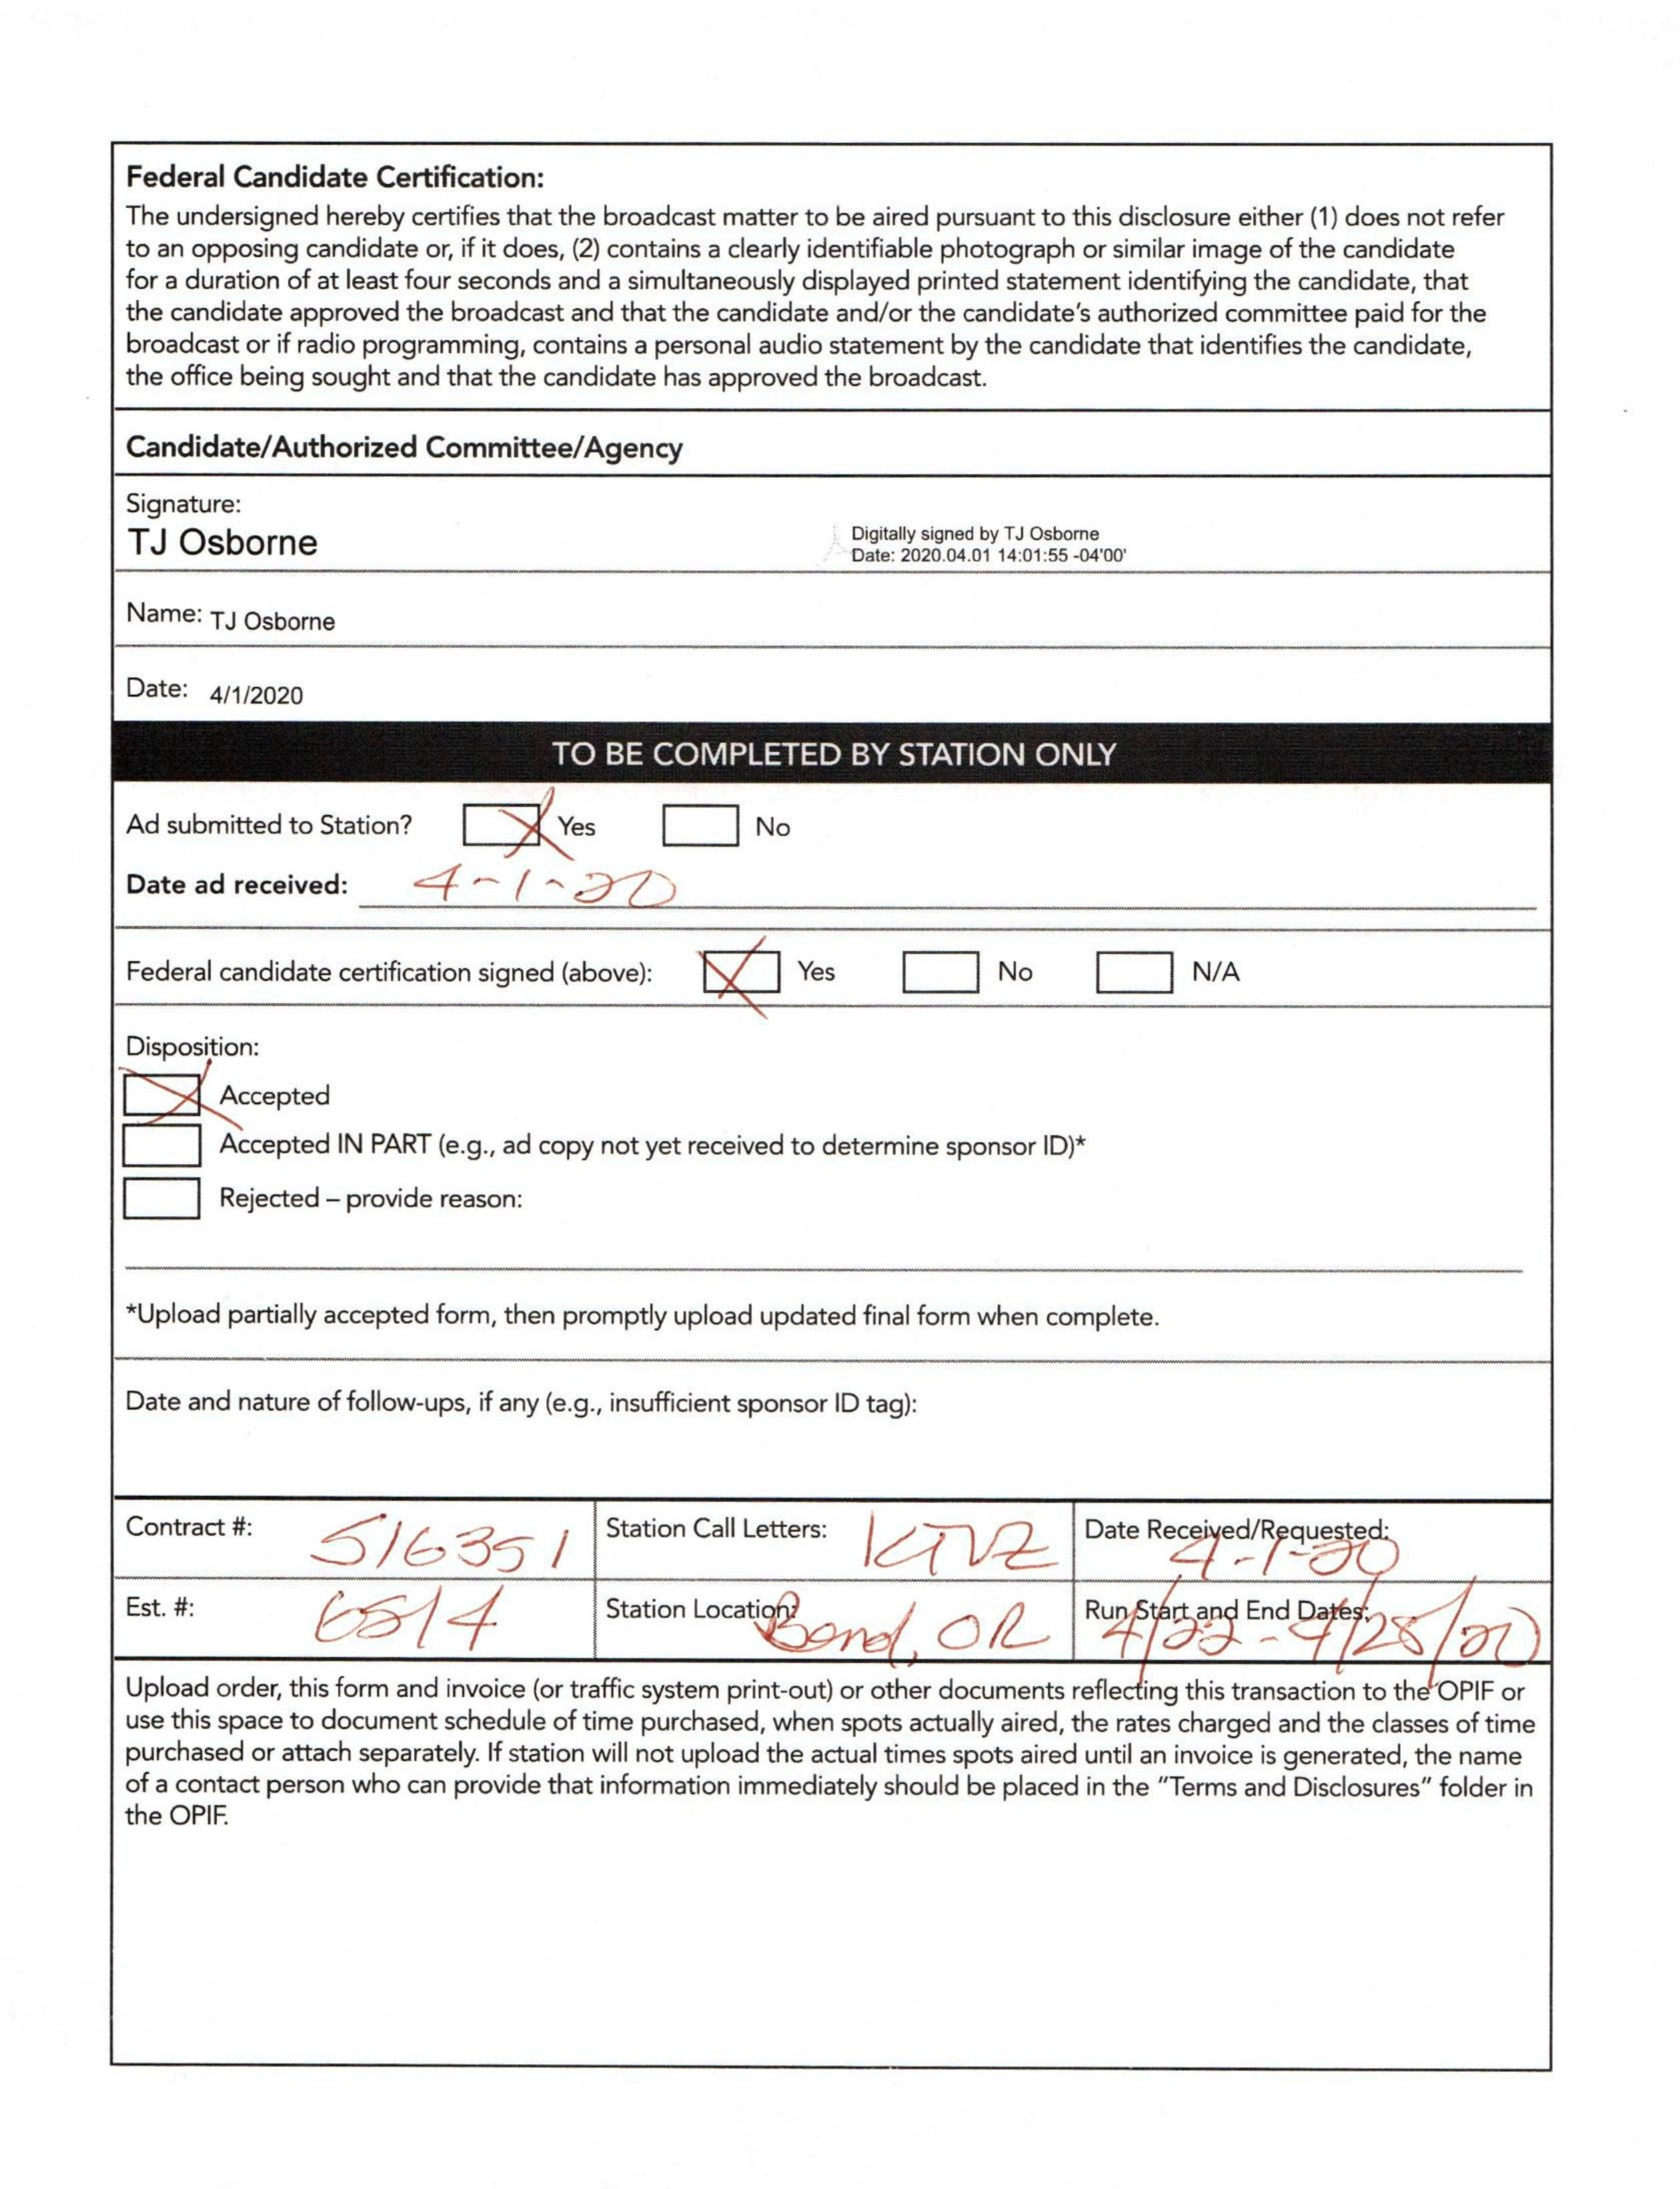 Federal Candidate Certification:
The undersigned hereby certifies that the broadcast matter to be aired pursuant to this disclosure either (1) does not refer
to an opposing candidate or, if it does, (2) contains a clearly identifiable photograph or similar image of the candidate
for a duration of at least four seconds and a simultaneously displayed printed statement identifying the candidate, that
the candidate approved the broadcast and that the candidate and/or the candidate's authorized committee paid for the
broadcast or if radio programming, contains a personal audio statement by the candidate that identifies the candidate,
the office being sought and that the candidate has approved the broadcast.
Candidate/Authorized Committee/Agency
Signature:
TJ Osborne
Digitally signed by TJ Osborne
Date: 2020.04.01 14:01:55 -04'00'
Name: TJ Osborne
Date: 4/1/2020
TO BE COMPLETED BY STATION ONLY
Ad submitted to Station? Yes No
Date ad received: 4-1-20
Federal candidate certification signed (above): Yes No N/A
Disposition:
Accepted
Accepted IN PART (e.g., ad copy not yet received to determine sponsor ID)*
Rejected – provide reason:
*Upload partially accepted form, then promptly upload updated final form when complete.
Date and nature of follow-ups, if any (e.g., insufficient sponsor ID tag):
Contract #: 516351 Station Call Letters: KTVZ Date Received/Requested: 4-1-20
Est. #: 6514 Station Location: Bend, OR Run Start and End Dates: 4/22-4/28/20
Upload order, this form and invoice (or traffic system print-out) or other documents reflecting this transaction to the OPIF or
use this space to document schedule of time purchased, when spots actually aired, the rates charged and the classes of time
purchased or attach separately. If station will not upload the actual times spots aired until an invoice is generated, the name
of a contact person who can provide that information immediately should be placed in the "Terms and Disclosures" folder in
the OPIF.